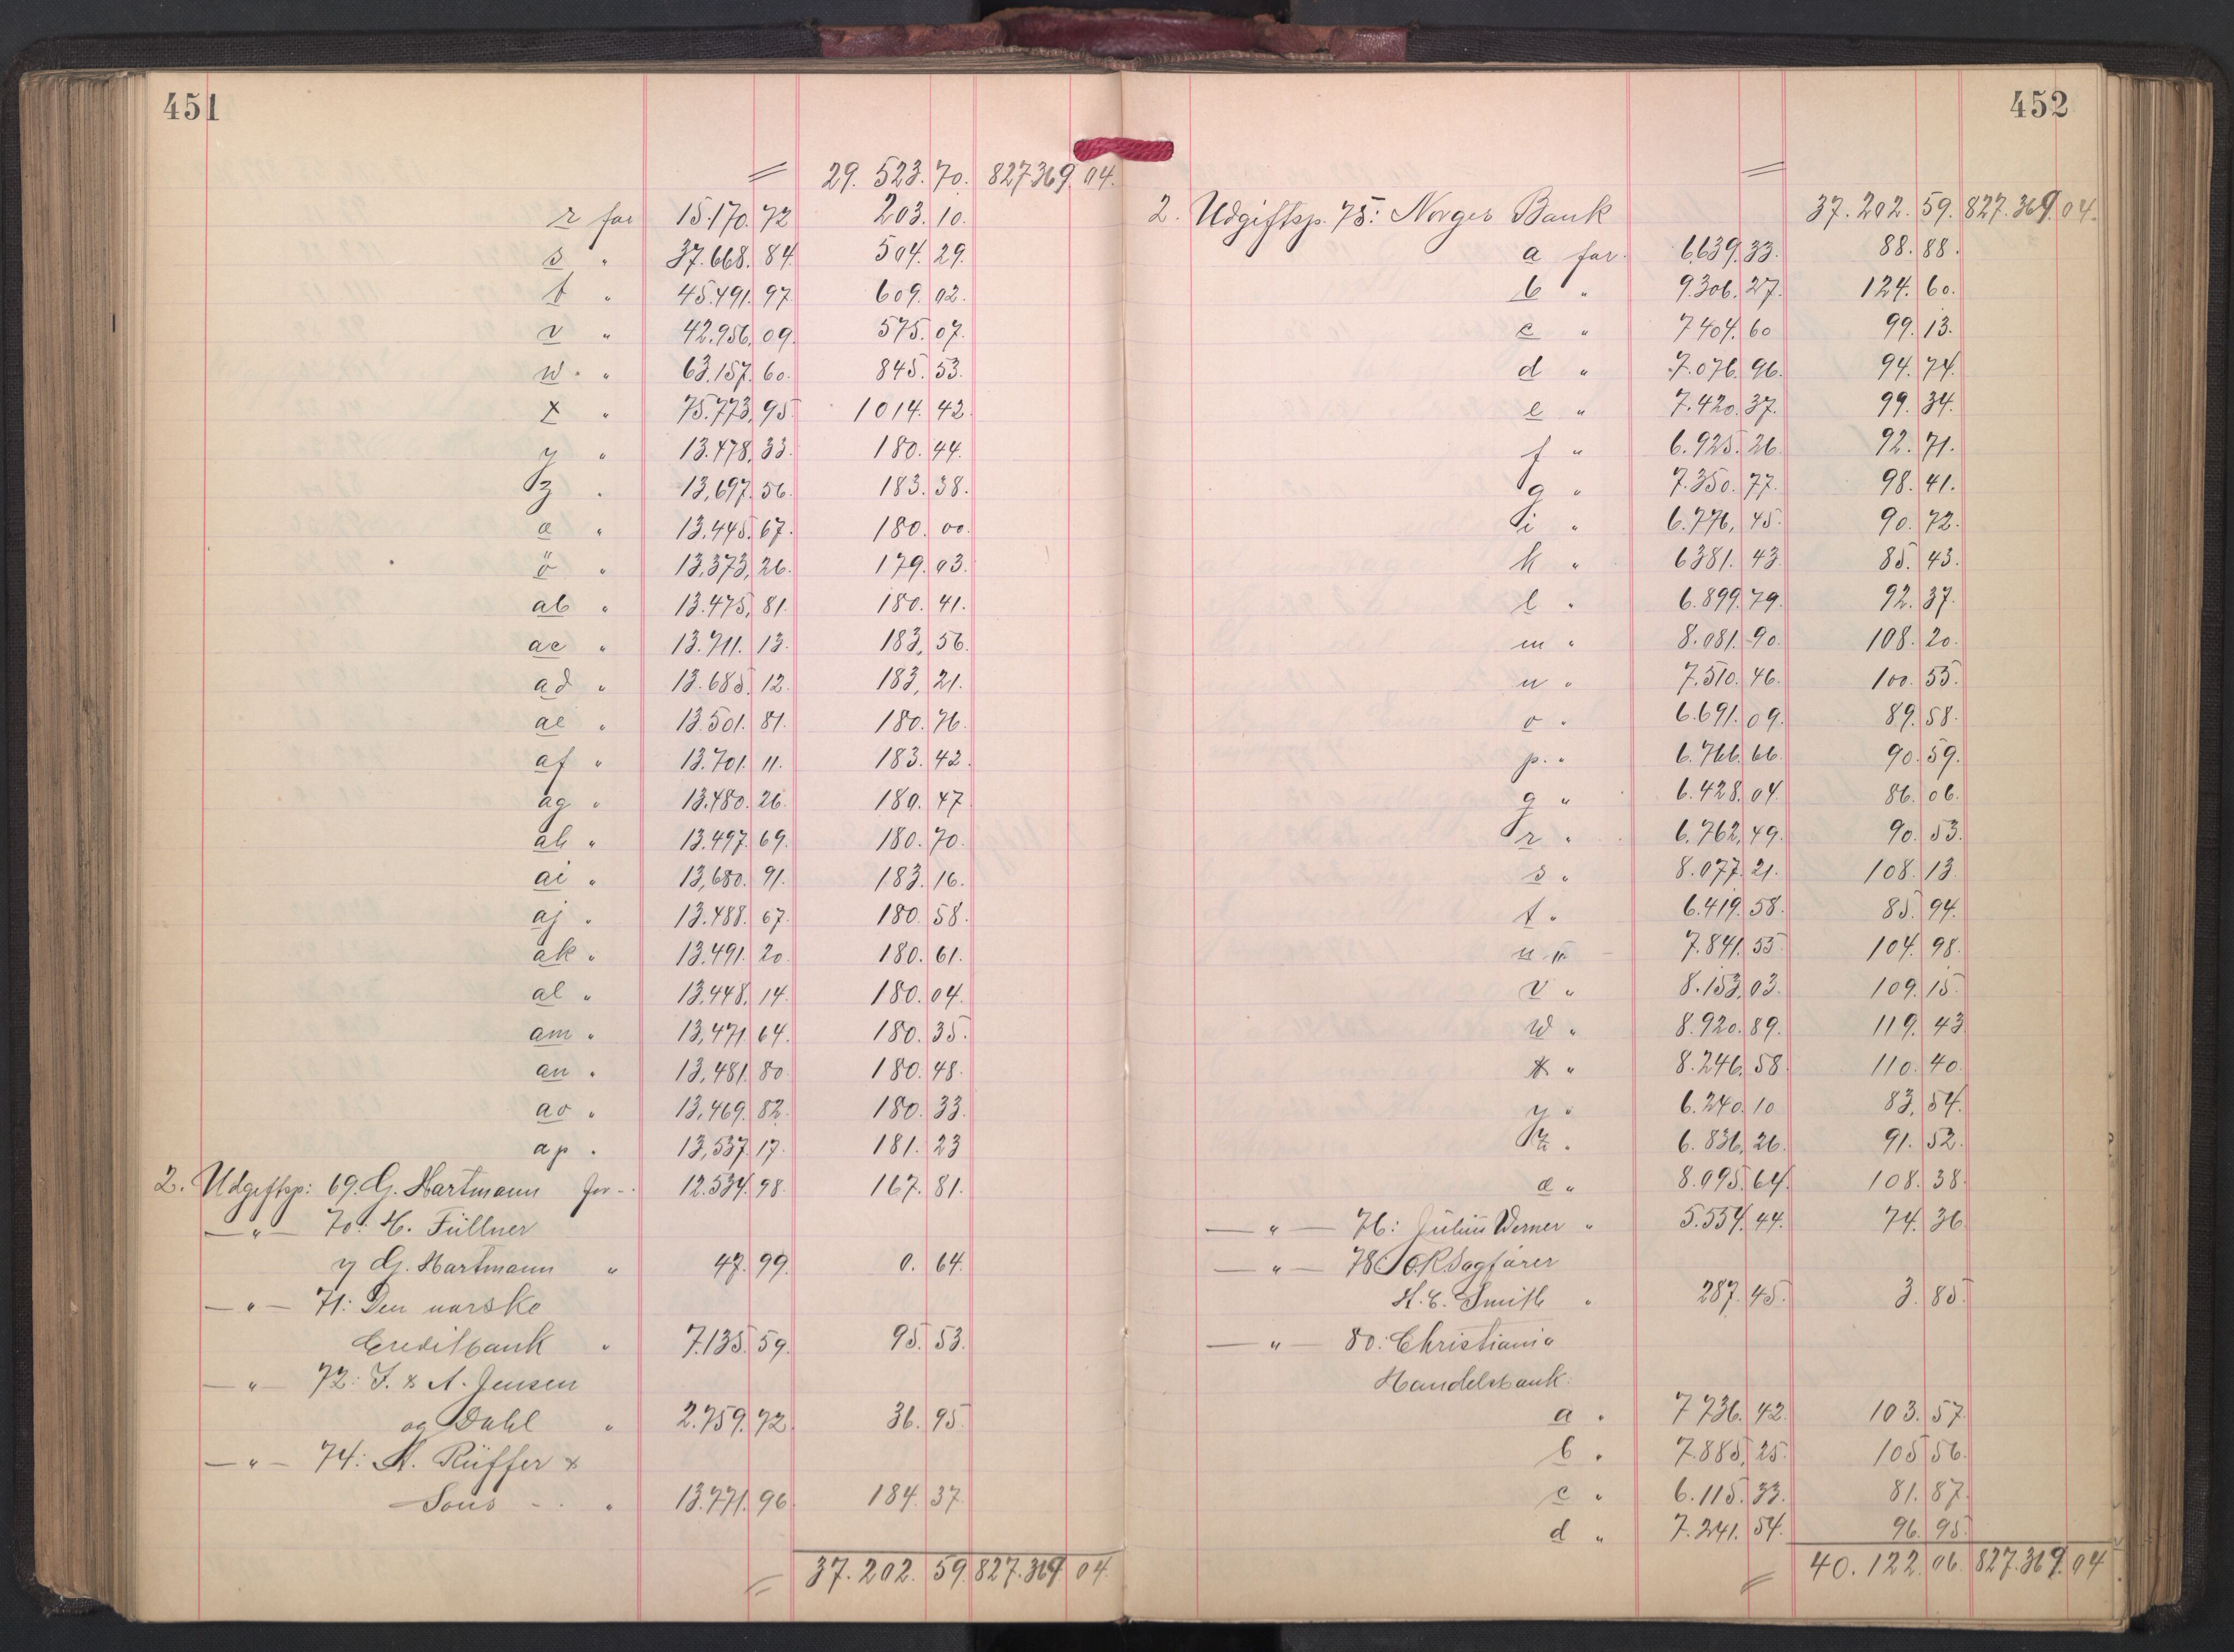 451
29.523.70. 827369.04.
r for 15.170.72 203.10.
s " 37.668.84 504.29.
t " 45.491.97 609.02.
v " 42.956.09. 575.07.
w " 63.157.60. 845.53.
x " 75.773.95 1014.42
y " 13.478.33. 180.44.
z " 13,697.56. 183.38.
a " 13.445.67. 180.00.
ö " 13,373,26. 179.03.
ab " 13.475,81. 180.41.
ac " 13.711.13. 183,56.
ad " 13.685.12. 183,21.
ae " 13.501.81. 180.76.
af " 13.701.11. 183.42.
ag " 13.480.26. 180.47
ah " 13.497.69. 180.70.
ai " 13,680.91. 183.16.
aj " 13.488.67. 180.58.
ak " 13.491.20 180.61.
al " 13,448.14. 180.04.
am " 13,471.64. 180.35.
an " 13,481.80 180.48.
ao " 13,469.82. 180.33.
ap " 13,537.17. 181.23
2. Udgiftsp: 69. G. Hartmann for 12.534.98. 167.81.
— " — 70: H. Füllner
y G. Hartmann " 47.99. 0.64.
— " — 71: Den norske
Creditbank " 7.135.59. 95.53.
— " — 72: J. & A. Jensen
og Dahl " 2.759.72. 36.95
— " — 74: A. Rüffer &
Sons " 13.771.96 184.37
37.202.59. 827.369.04.
452
2. Udgiftsp. 75: Norges Bank 37.202.59. 827.369.04.
a for 6,639.33. 88.88.
b " 9.306.27. 124.60.
c " 7404.60 99.13.
d " 7.076.96. 94.74.
e " 7.420.37. 99.34.
f " 6.925.26. 92.71.
g " 7.350.77. 98.41.
i " 6.776,45. 90.72.
k " 6381.43. 85.43.
l " 6.899.79. 92.37.
m " 8.081.90. 108.20.
n " 7.510.46. 100.55.
o " 6.691.09. 89.58.
p " 6.766.66. 90.59.
q " 6.428.04. 86.06.
r " 6.762,49. 90.53.
s " 8.077.21. 108.13.
t " 6.419.58. 85.94.
u " 7.841.55. 104.98.
v " 8.153,03. 109.15.
w " 8.920.89. 119.43
x " 8.246.58. 110.40.
y " 6.240.10 83,54.
z " 6.836,26. 91.52.
a " 8.095.64. 108.38.
— " — 76: Julius Werner " 5.554.44. 74.36
— " — 78: O.R.Sagfører
H. C. Smith " 287.45. 3.85.
— " — 80: Christiania
Handelsbank:
a " 7736.42. 103.57.
b " 7.885,25. 105.56.
c " 6.115.33. 81.87.
d " 7.241.54. 96.95.
40.122.06. 827.369.04